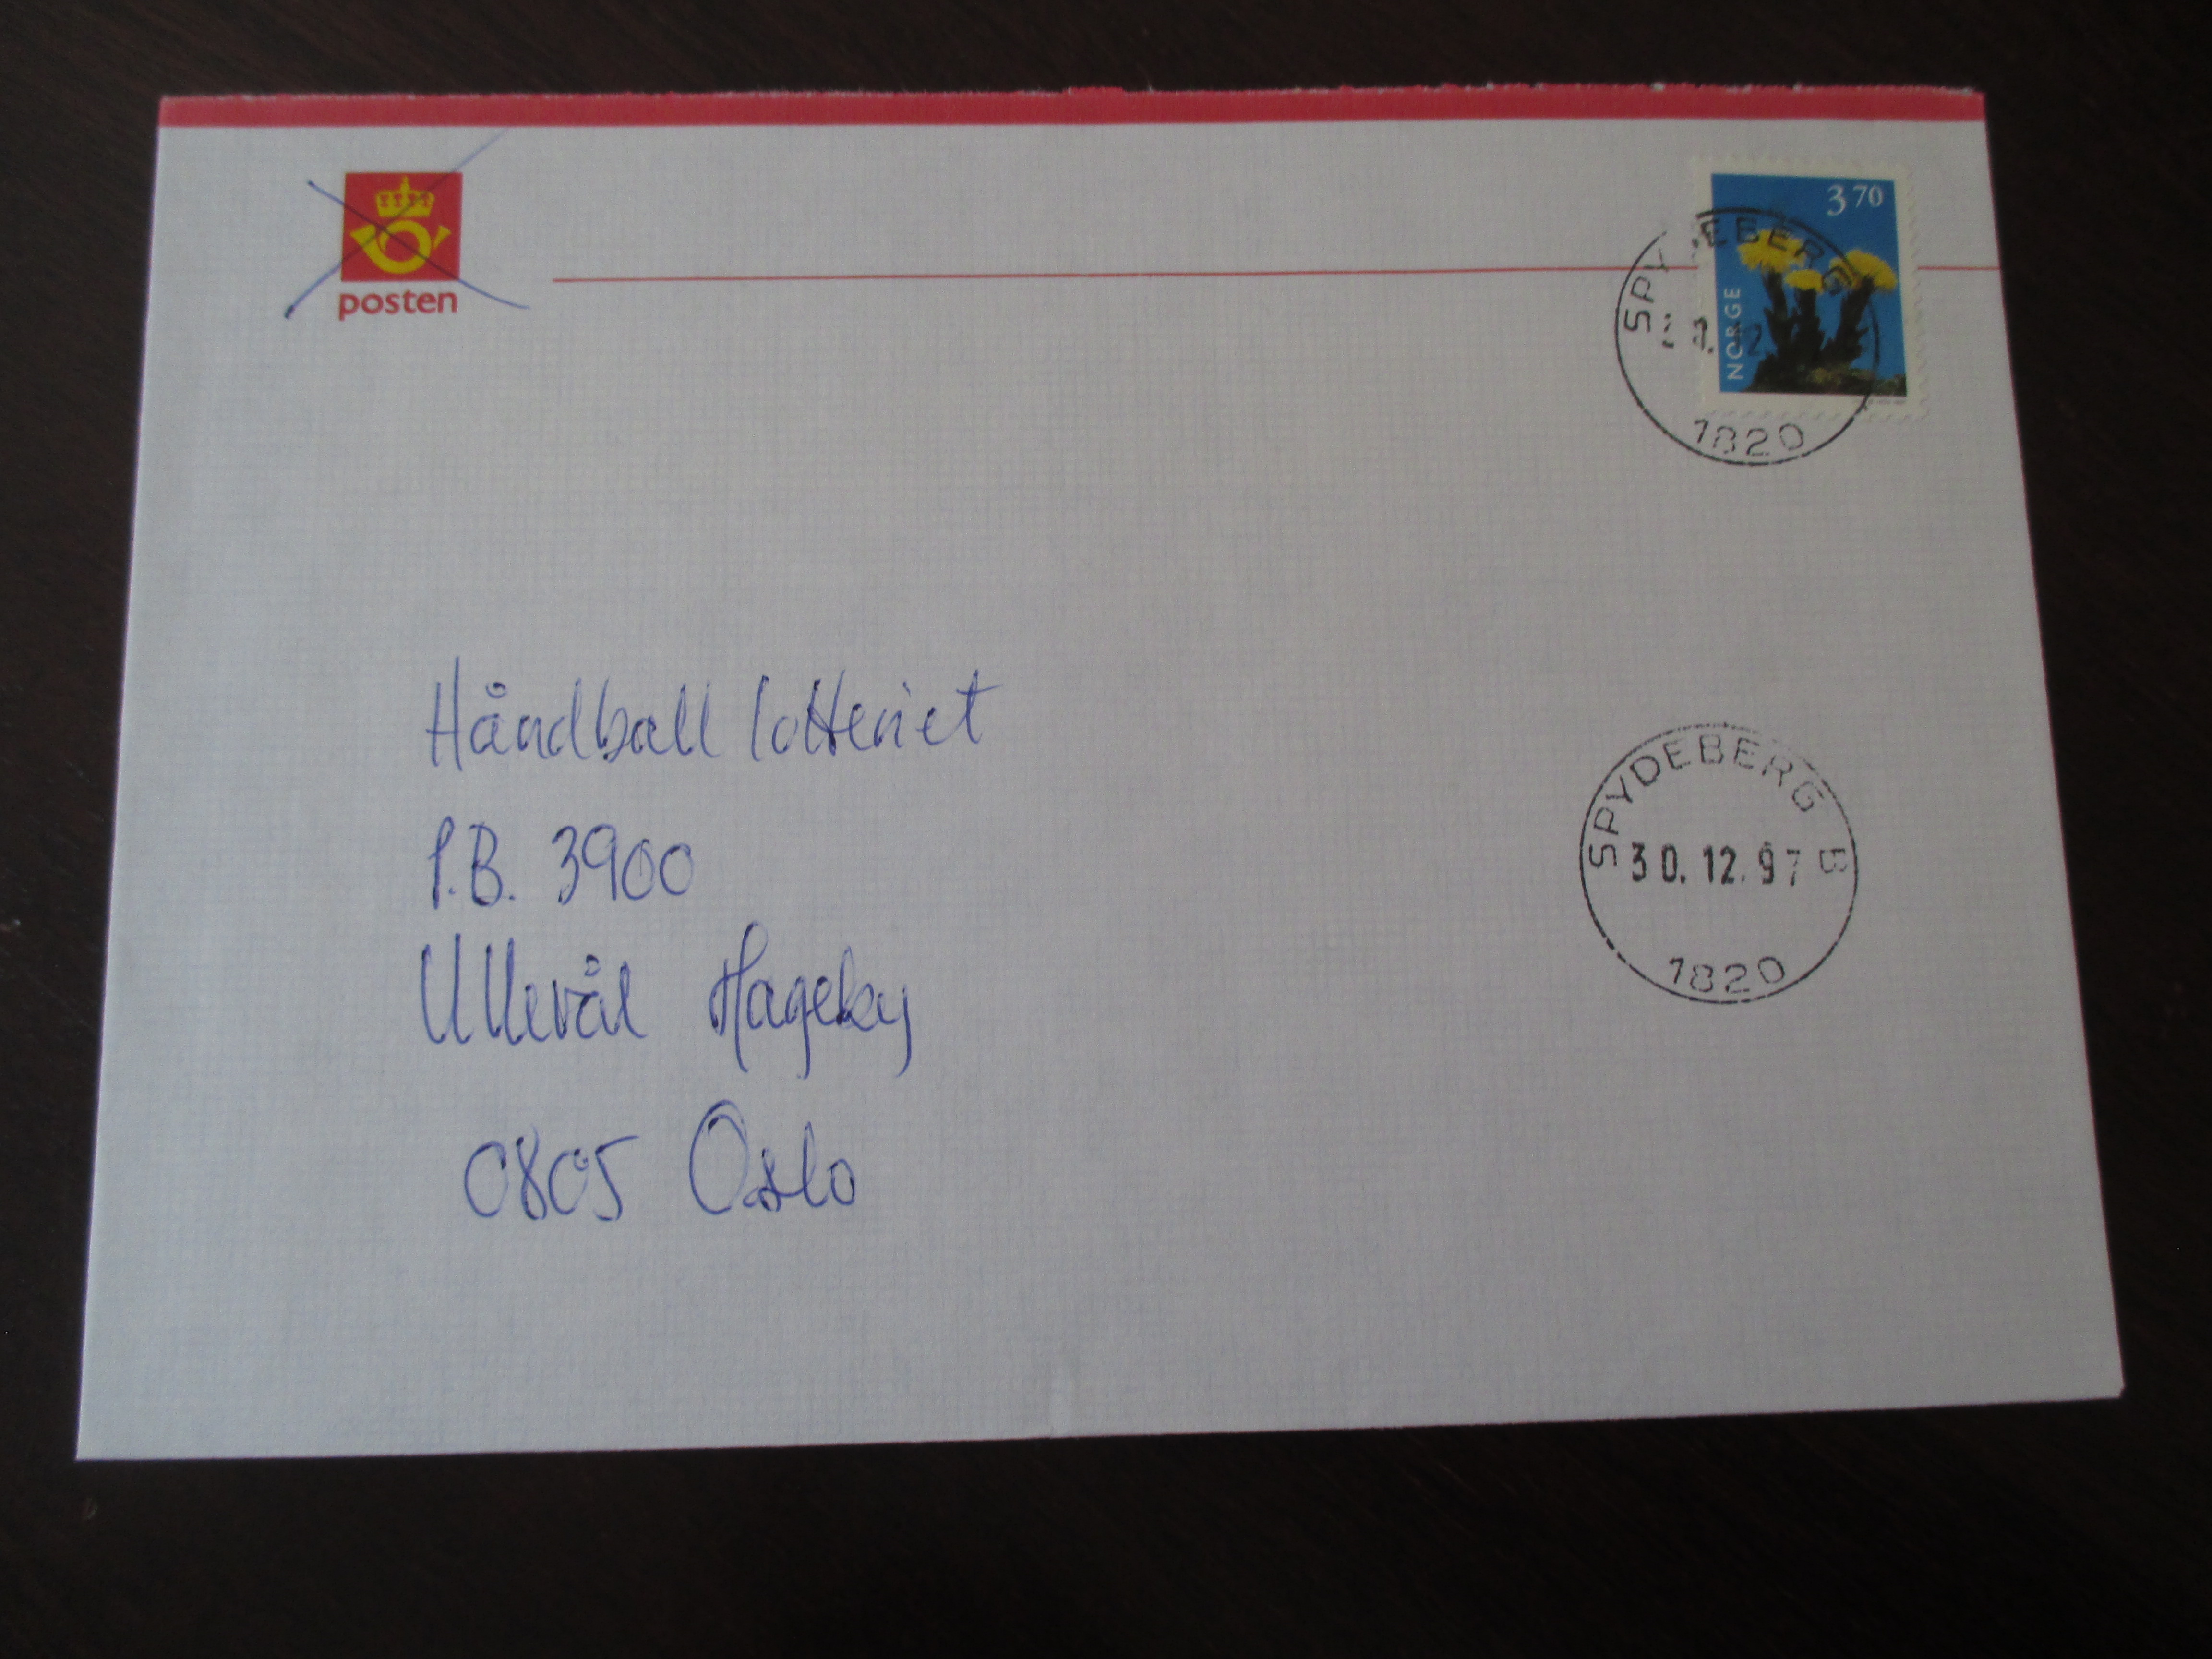 posten
3 70
NORGE
SPYDEBERG
1820
Håndball lotteriet
P.B. 3900
Ullevål Hageby
0805 Oslo
SPYDEBERG B
30.12.97
1820